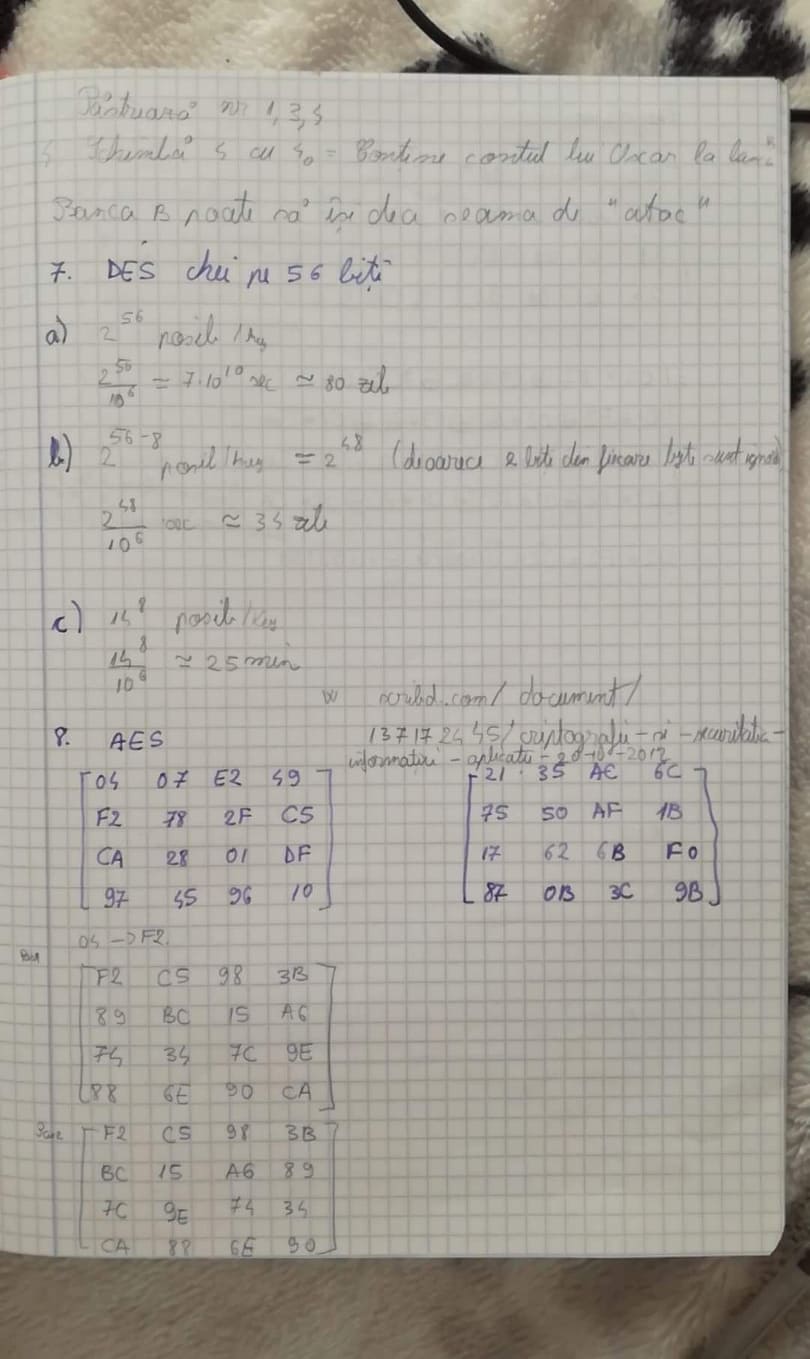 Păstrează nr 1, 3, 4
Schimbă 4 cu 4₀ = Conține contul lu Oscar la banc
Banca B poate să își dea seama de "atac"
7. DES chei pe 56 biți
a) 2^56 posib/key
2^56/10^6 = 7·10^10 sec ≃ 80 zile
b) 2^56-8 posib/key = 2^48 (deoarece 2 biti din fiecare byte sunt ignorați)
2^48/10^6 sec ≈ 34 zile
c) 14^8 posib/key
14^8/10^6 ≃ 25 min
w scribd.com/document/
8. AES 137172445/criptografii-si-securitatea-
informatiei-aplicatii-20-10-2012
04 07 E2 49
F2 78 2F C5
CA 28 01 DF
97 45 96 10
21 35 AE 6C
75 50 AF 1B
17 62 6B F0
87 0B 3C 9B
04 -> F2.
F2 C5 98 3B
89 BC 15 A6
74 34 7C 9E
88 6E 90 CA
F2 C5 98 3B
BC 15 A6 89
7C 9E 74 34
CA 88 6E 90